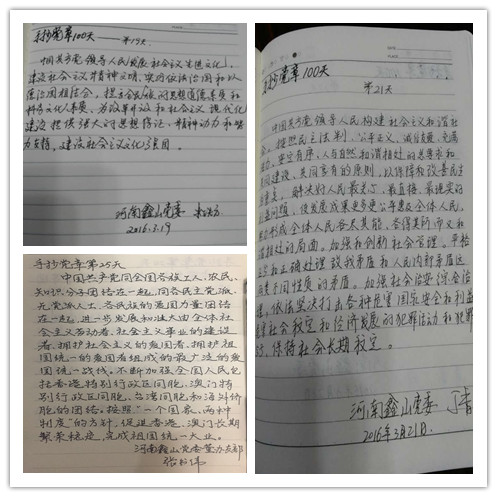 手抄党章100天——第19天
中国共产党领导人民发展社会主义先进文化，
建设社会主义精神文明，实行依法治国和以
德治国相结合，提高全民族的思想道德素质和
科学文化素质，为改革开放和社会主义现代化
建设提供强大的思想保证、精神动力和智
力支持，建设社会主义文化强国。
河南鑫山党委
2016.3.19
手抄党章第25天
中国共产党同全国各族工人、农民、
知识分子团结在一起，同各民主党派、
无党派人士、各民族的爱国力量团结
在一起，进一步发展和壮大由全体社
会主义劳动者、社会主义事业的建设
者、拥护社会主义的爱国者、拥护祖
国统一的爱国者组成的最广泛的爱
国统一战线。不断加强全国人民包
括香港特别行政区同胞、澳门特
别行政区同胞、台湾同胞和海外侨
胞的团结。按照“一个国家、两种
制度”的方针，促进香港、澳门长期
繁荣稳定，完成祖国统一大业。
河南鑫山党委堂办支部
手抄党章100天
第21天
中国共产党领导人民构建社会主义和谐社
会。按照民主法制、公平正义、诚信友爱、充满
活力、安定有序、人与自然和谐相处的总要求和
共同建设、共同享有的原则，以保障和改善民生
为重点，解决好人民最关心、最直接、最现实的
利益问题，使发展成果更多更公平惠及全体人民，
努力形成全体人民各尽其能、各得其所而又和
谐相处的局面。加强和创新社会管理。严格
区分和正确处理敌我矛盾和人民内部矛盾这
两类不同性质的矛盾。加强社会治安综合治
理，依法坚决打击各种危害国家安全和利益、
危害社会稳定和经济发展的犯罪活动和犯罪
分子，保持社会长期稳定。
河南鑫山党委
2016年3月21日.